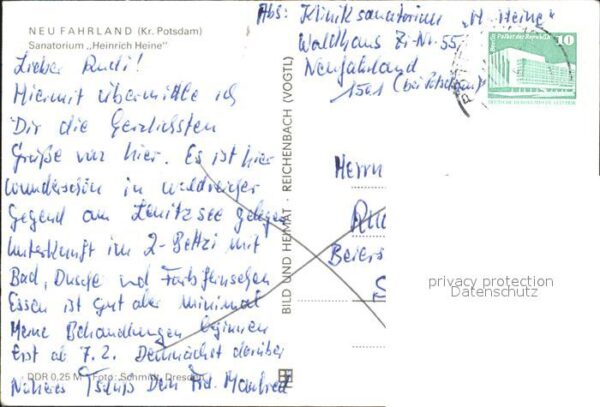 NEU FAHRLAND (Kr. Potsdam)
Sanatorium „Heinrich Heine"
Lieber Rudi!
Hiermit übermittle ich
Dir die herzlichsten
Grüße von hier. Es ist hier
wunderschön in waldreicher
Gegend am Lehnitzsee gelegen
Unterkunft im 2-Bettzi mit
Bad, Dusche und Farbfernsehen
Essen ist gut aber minimal
Meine Behandlungen beginnen
Erst ab 7.2. Demnächst darüber
Näheres Tschüß Dein Frd. Manfred
DDR 0,25 M Foto: Schmidt, Dresden
BILD UND HEIMAT · REICHENBACH (VOGTL)
Abs: Kliniksanatorium „H. Heine"
Waldhaus Zi-Nr. 55
Neufahrland
1501 (bei Potsdam)
Berlin, Palast der Republik
10
DEUTSCHE DEMOKRATISCHE REPUBLIK
Herrn
Beiers
privacy protection
Datenschutz